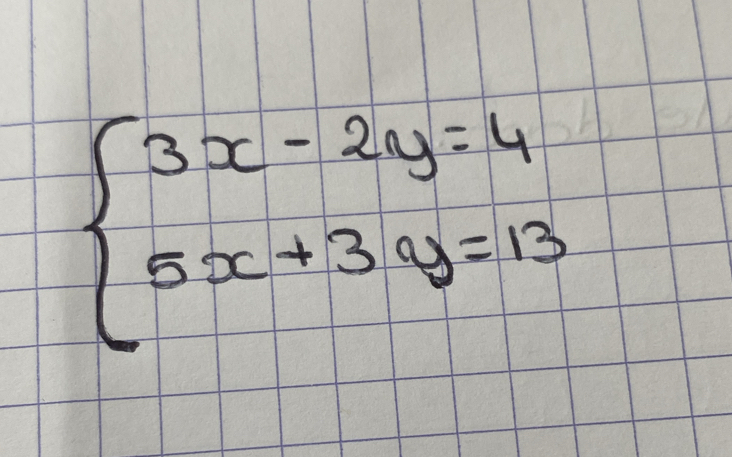 3x - 2y = 4
5x + 3y = 13